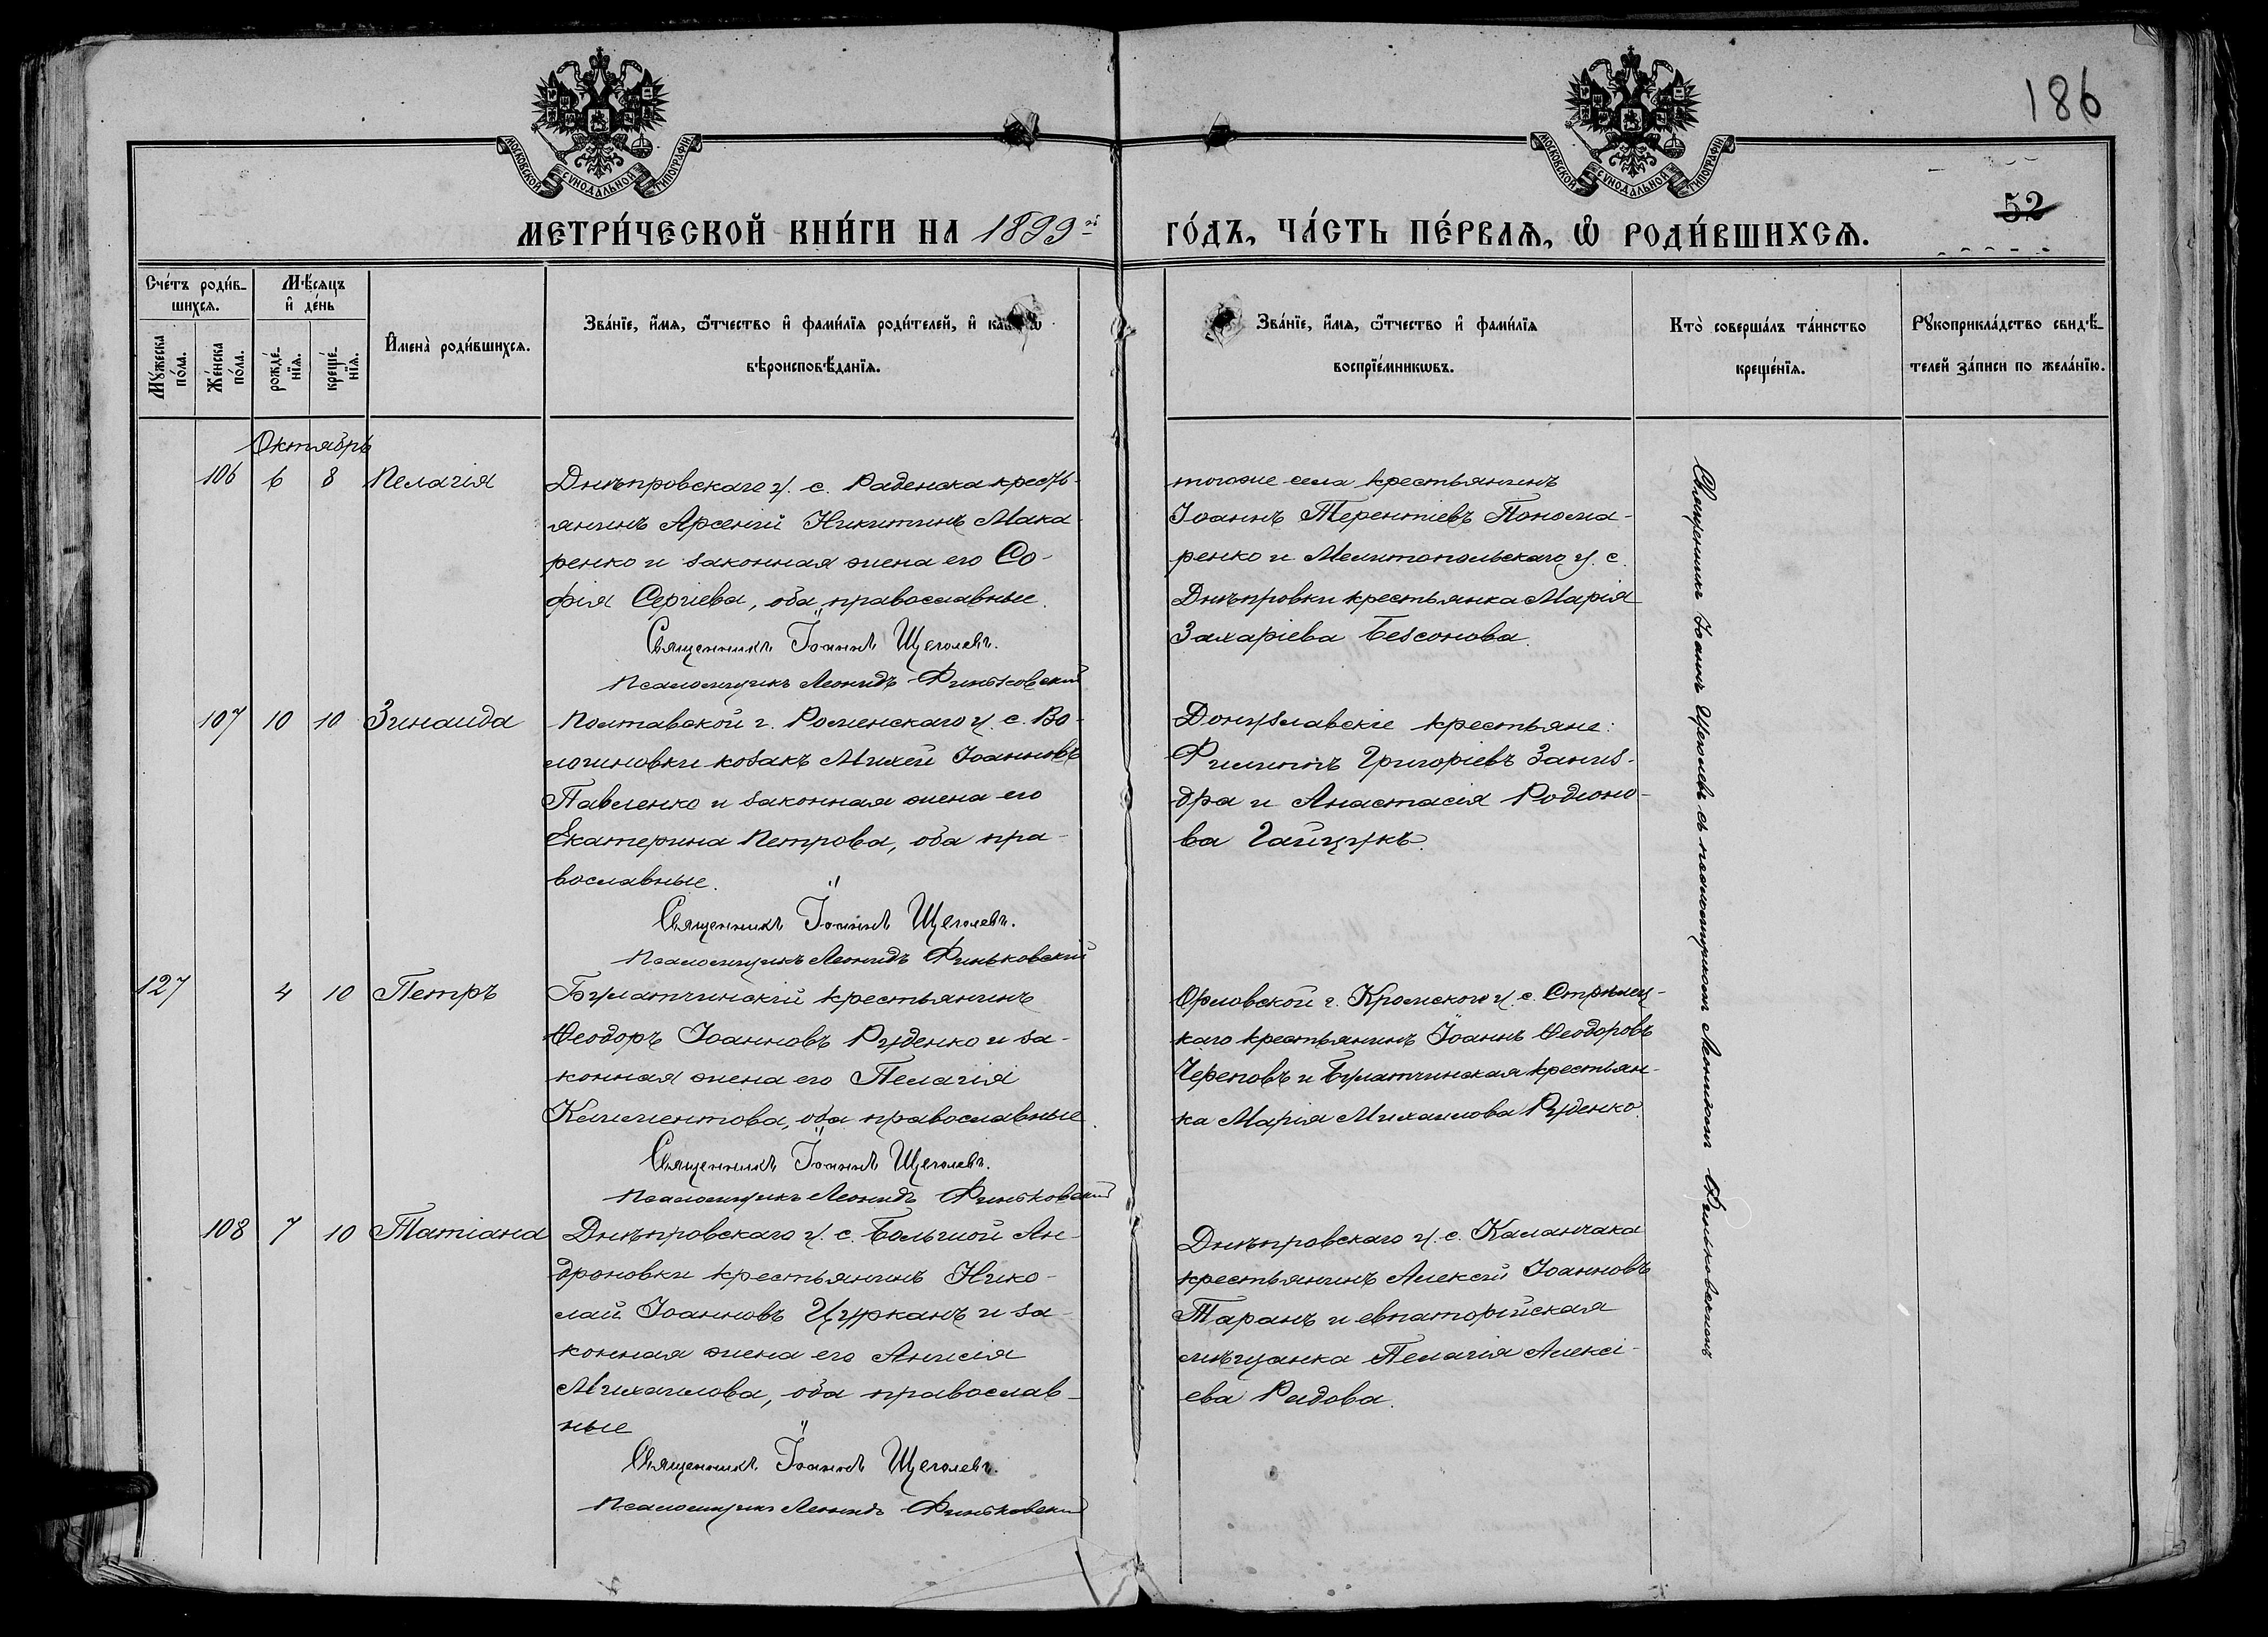 186
МОСКОВСКОЙ СѴНОДАЛЬНОЙ ТИПОГРАФІИ
МОСКОВСКОЙ СѴНОДАЛЬНОЙ ТИПОГРАФІИ
52
МЕТРИ́ЧЕСКОЙ КНИ́ГИ НА 1899й
ГО́ДЪ, ЧА́СТЬ ПЕ́РВАѦ, Ѡ҆ РОДИ́ВШИХСѦ.
Сче́тъ роди́в-
шихсѧ.
Мꙋ́жеска по́ла.
Же́нска по́ла.
Мѣ́сяцъ
и҆ де́нь
рожде́-нїѧ.
креще́-нїѧ.
И҆мена̀ роди́вшихсѧ.
Зва́нїе, и҆́мѧ, ѻ҆́тчество и҆ фами́лїѧ роди́телей, и҆
вѣроисповѣ́данїѧ.
Зва́нїе, и҆́мѧ, ѻ҆́тчество и҆ фами́лїѧ
воспрїе́мникѡвъ.
Кто̀ соверша́лъ та́инство
креще́нїѧ.
Рꙋкоприкла́дство свидѣ́-
телей за́писи по жела́нїю.
Октябрь
106 6 8 Пелагія
Днѣпровскаго у. с. Раденска кресть-
янинъ Арсеній Никитинъ Мака-
ренко и законная жена его Со-
фія Сергіева, оба православные.
Священникъ Іоаннъ Щеголевъ.
Псаломщикъ Леонидъ Финьковскій
тогоже села крестьянинъ
Іоаннъ Терентіевъ Понома-
ренко и Мелитопольскаго у. с.
Днѣпровки крестьянка Марія
Захаріева Безсонова.
107 10 10 Зинаида
Полтавской г. Роменскаго у. с. Во-
логиновки козакъ Михей Іоанновъ
Павленко и законная жена его
Екатерина Петрова, оба пра-
вославные.
Священникъ Іоаннъ Щеголевъ.
Псаломщикъ Леонидъ Финьковскій
Донузлавскіе крестьяне:
Филиппъ Григоріевъ Заниз-
дра и Анастасія Родіоно-
ва Гайцукъ.
127 4 10 Петръ
Булатчинскій крестьянинъ
Ѳеодоръ Іоанновъ Руденко и за-
конная жена его Пелагія
Климентова, оба православные.
Священникъ Іоаннъ Щеголевъ.
Псаломщикъ Леонидъ Финьковскій
Орловской г. Кромского у. с. Стрѣлец-
каго крестьянинъ Іоаннъ Ѳеодоровъ
Череповъ и Булатчинская крестьян-
ка Марія Михаилова Руденко.
108 7 10 Татіана
Днѣпровскаго у. с. Большой Ан-
дроновки крестьянинъ Нико-
лай Іоанновъ Цурканъ и за-
конная жена его Анисія
Михаилова, оба православ-
ные
Священникъ Іоаннъ Щеголевъ.
Псаломщикъ Леонидъ Финьковскій
Днѣпровскаго у. с. Каланчака
крестьянинъ Алексій Іоанновъ
Таранъ и евпаторійская
мѣщанка Пелагія Алексі-
ева Радова.
Священникъ Іоаннъ Щеголевъ съ псаломщикомъ Леонидомъ Финьковскимъ